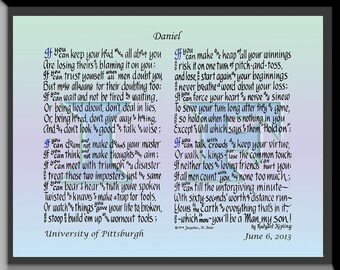 Daniel
If you can keep your head when all about you
Are losing theirs & blaming it on you;
If you can trust yourself when all men doubt you,
But make allowance for their doubting too:
If you can wait and not be tired by waiting,
Or, being lied about, don't deal in lies,
Or being hated don't give way to hating,
And yet don't look too good nor talk too wise;
If you can dream and not make dreams your master
If you can think and not make thoughts your aim;
If you can meet with triumph and disaster
& treat those two impostors just the same:
If you can bear to hear the truth you've spoken
Twisted by knaves to make a trap for fools,
Or watch the things you gave your life to broken,
& stoop & build 'em up with worn out tools:
If you can make one heap of all your winnings
& risk it on one turn of pitch-and-toss,
and lose & start again at your beginnings
& never breathe a word about your loss:
If you can force your heart & nerve & sinew
To serve your turn long after they are gone,
& so hold on when there is nothing in you
Except the Will which says to them "Hold on!"
If you can talk with crowds & keep your virtue,
Or walk with kings nor lose the common touch
If neither foes nor loving friends can hurt you
If all men count with you, but none too much:
If you can fill the unforgiving minute
With sixty seconds' worth of distance run-
Yours is the Earth & everything that's in it,
&-which is more-you'll be a Man, my son!
by Rudyard Kipling
University of Pittsburgh
June 6, 2013